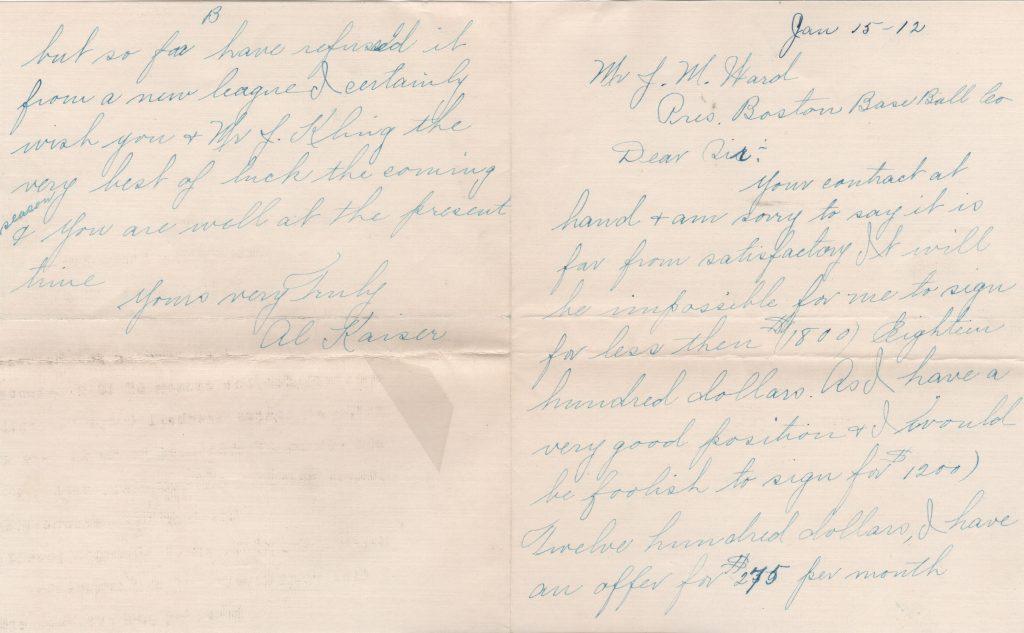 Jan 15-12
Mr J. M. Ward
Pres. Boston Base Ball Co
Dear Sir:-
Your contract at
hand & am sorry to say it is
far from satisfactory It will
be impossible for me to sign
for less then $1800) Eighteen
hundred dollars. As I have a
very good position & I would
be foolish to sign for $1200)
Twelve hundred dollars, I have
an offer for $275 per month
B
but so far have refused it
from a new league I certainly
wish you & Mr J. Kling the
very best of luck the coming
season
& You are well at the present
time
Yours very Truly
Al Kaiser